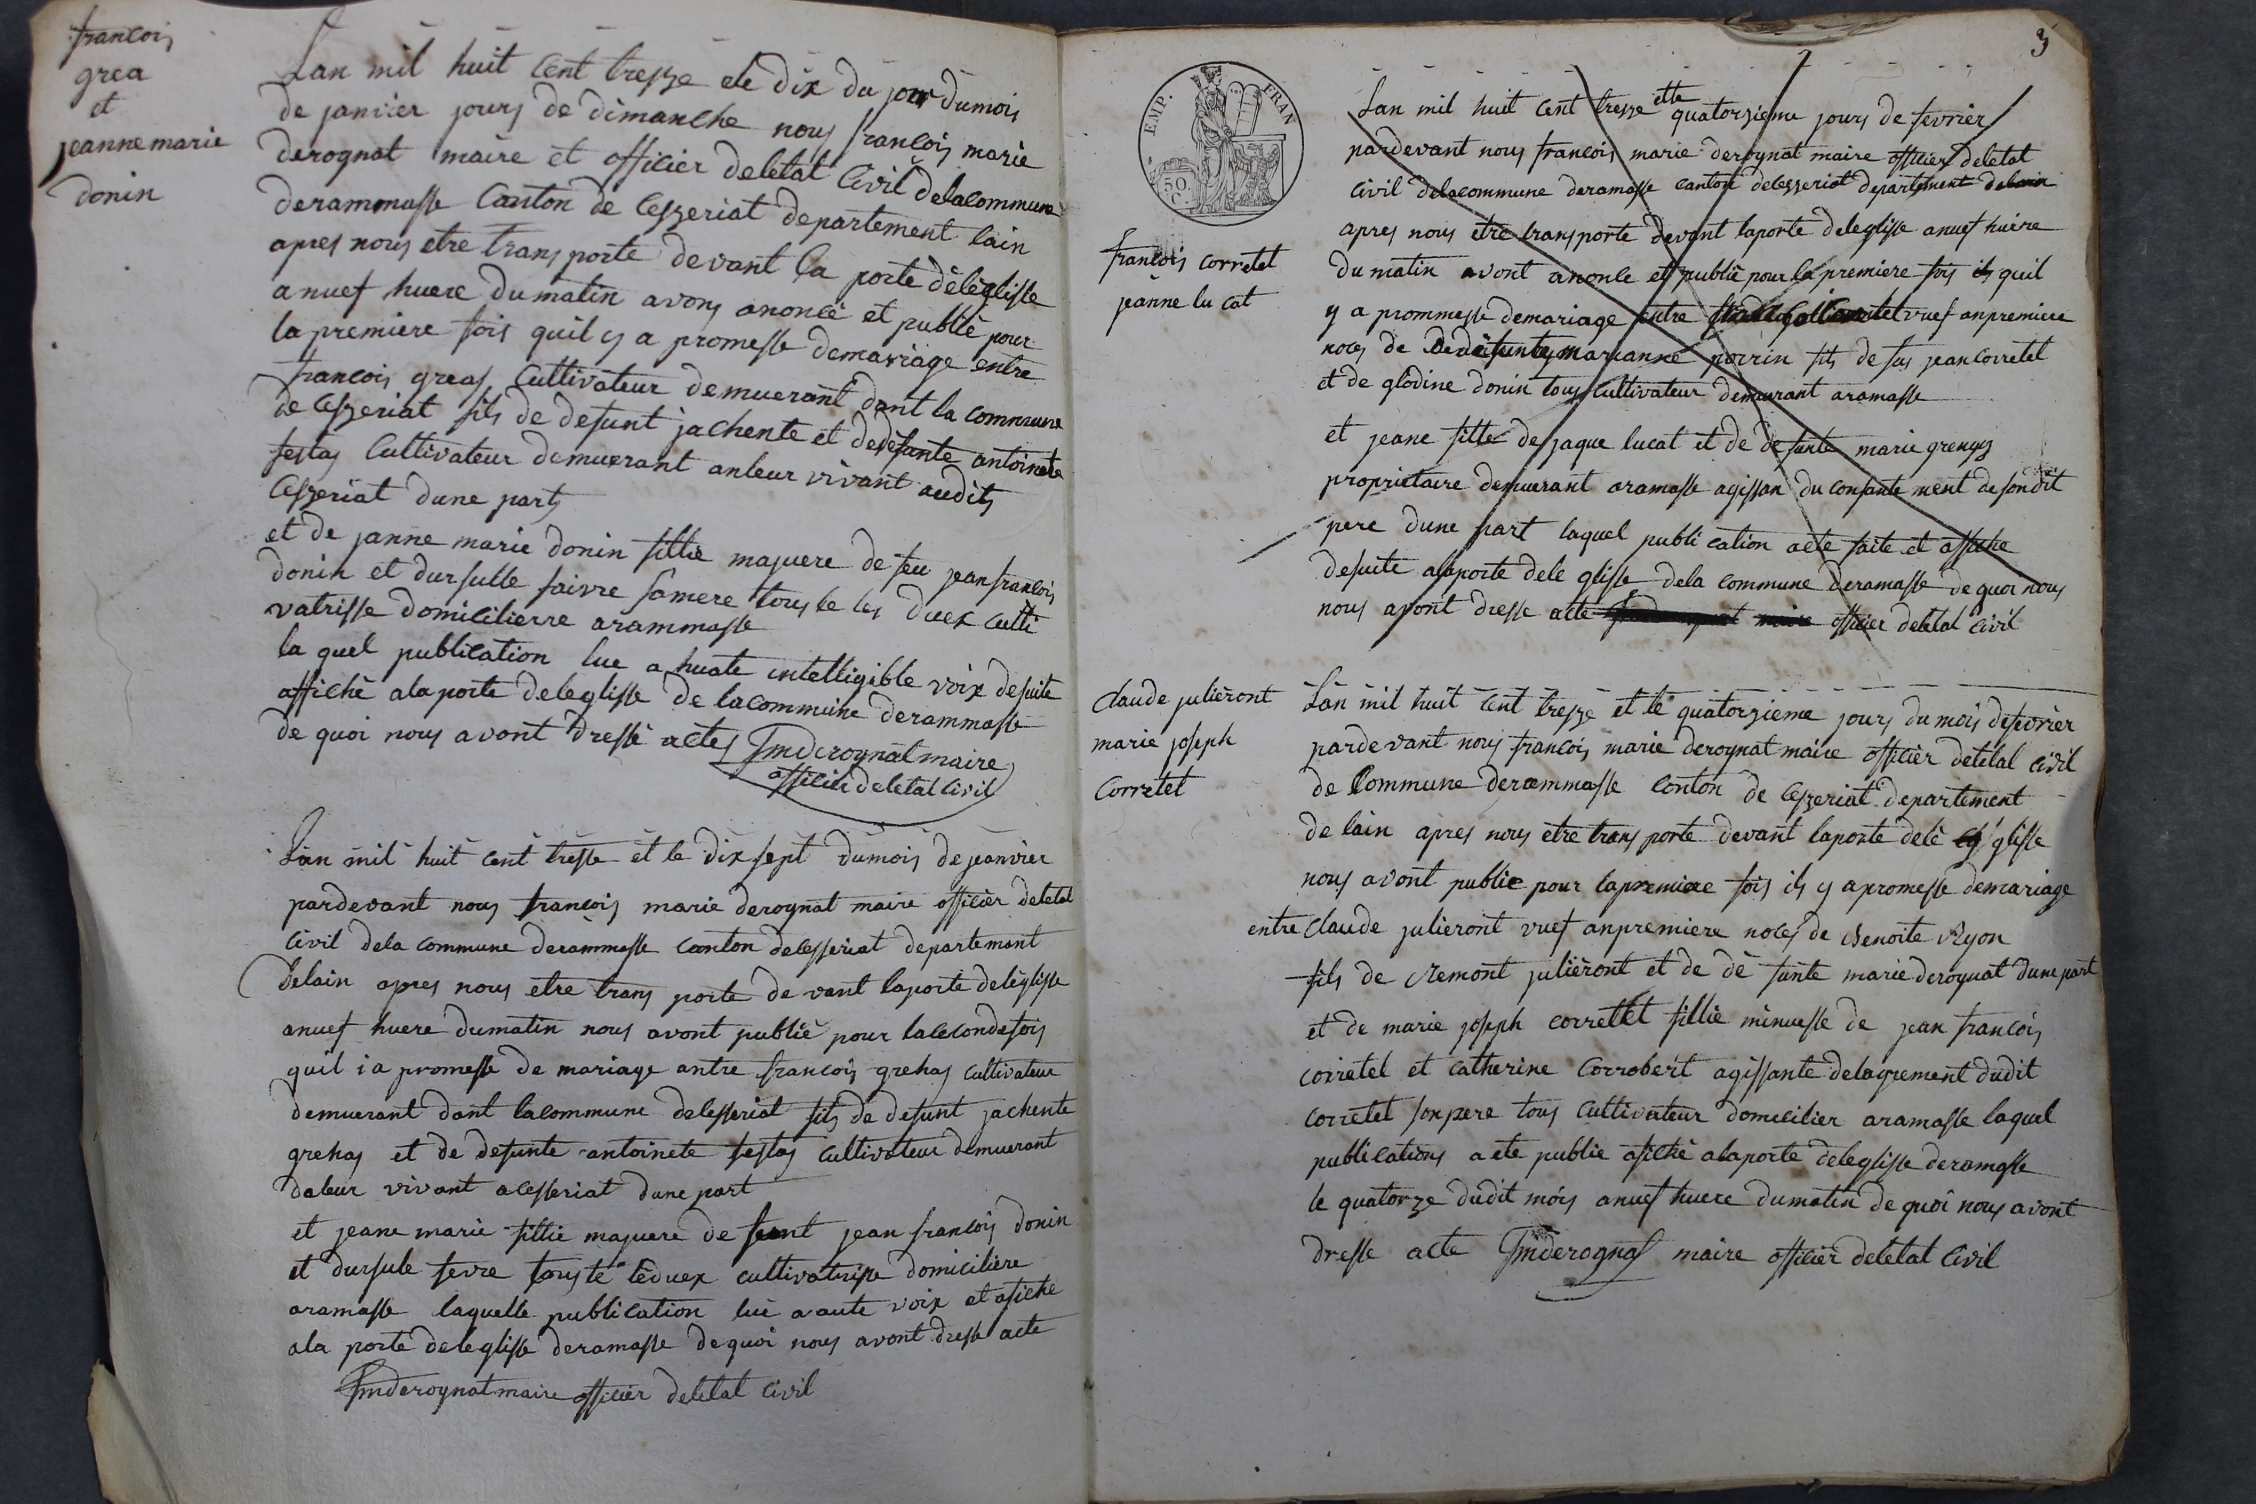 francois
grea
et
jeanne marie
donin
Lan mil huit cent trezze ele dix du jour dumois
de janvier jours de dimanche nous francois marie
derognat maire et officier deletat Civil delacommune
derammasse Canton de Cezzeriat departement lain
apres nous etre transporte devant la porte deleglisse
anuef huere dumatin avons anoncé et publié pour
la premiere fois quil y a promesse demariage entre
francois greas Cultivateur demuerant dant la commune
de Cezzeriat fils de defunt jachente et dedefunte antoinete
festas Cultivateur demuerant anleur vivant audits
Cezzeriat dune part
et de janne marie donin fillie majuere de feu jean francois
donin et dursulle faivre samere tous le les duex culti
vatrisse domicilierre arammasse
la quel publication lue a huate intelligible voix desuite
affiché alaporte deleglisse de lacommune derammasse
de quoi nous avont dressé actes fmderognat maire
officier deletat Civil
Lan mil huit cent tresse et le dix sept dumois de janvier
pardevant nous francois marie derognat maire officier deletat
Civil dela commune derammasse Canton delesseriat departement
Delain apres nous etre trans porte de vant laporte deleglisse
anuef huere dumatin nous avont publié pour lasecondefois
quil i a promesse de mariage antre francois grehas cultivateur
demuerant dant lacommune delesseriat fils de defunt jachente
grehas et de defunte antoinete festas cultivateur demuerant
daleur vivant acesseriat dune part
et jeane marie fillie majuere de feunt jean francois donin
et dursule fevre touste leduex cultivatrisse domiciliere
aramasse laquelle publication lue a aute voix et afiche
ala porte deleglisse deramasse dequoi nous avont dresse acte
fmderognat maire officier deletat Civil
3
EMP. FRAN
50
C.
francois corretet
jeanne lu cat
Lan mil huit cent trezze ette quatorzieme jours de fevrier
pardevant nous francois marie derognat maire officier deletat
Civil delacommune deramasse canton delesseriat departement delain
apres nous etre transporte devant laporte deleglisse anuef huere
dumatin avont anonce et publié pour la premiere fois ils quil
y a prommesse demariage entre vuef anpremiere
noces de marianne porrin fils de fus jean corretet
et de glodine donin tous Cultivateur demuerant aramasse
et jeane fille de jaque lucat et de defunte marie
proprietaire demuerant aramasse agissan du consante ment desondit
pere dune part laquel publi cation aete faite et affiche
desuite alaporte dele glisse dela commune deramasse de quoi nous
nous avont dresse acte maire officier deletat Civil
Claude julieront
marie joseph
Corretet
Lan mil huit cent trezze et le quatorzieme jours dumois defevrier
pardevant nous francois marie derognat maire officier deletat civil
de Commune derammasse conton de Cezzeriat departement
de lain apres nous etre trans porte devant laporte delé glisse
nous avont publie pour lapremiere fois ils y apromesse demariage
entre Claude julieront vuef anpremiere noces de Benoite Ryon
fils de Remont julieront et de dé funte marie derognat dune part
et de marie joseph correttet fillie minuesse de jean francois
corretet et Catherine Corrobert agissante delagrement dudit
corretet sonpere tous Cultivateur domicilier aramasse laquel
publications aete publie afiché alaporte deleglisse deramasse
le quatorze dudit mois anuef huere dumatin de quoi nous avont
dresse acte fmderognas maire officier deletat Civil